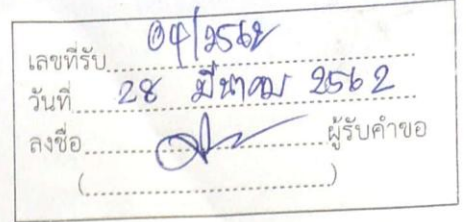 เลขที่รับ 04/2562
วันที่ 28 มีนาคม 2562
ลงชื่อ ผู้รับคำขอ
( )